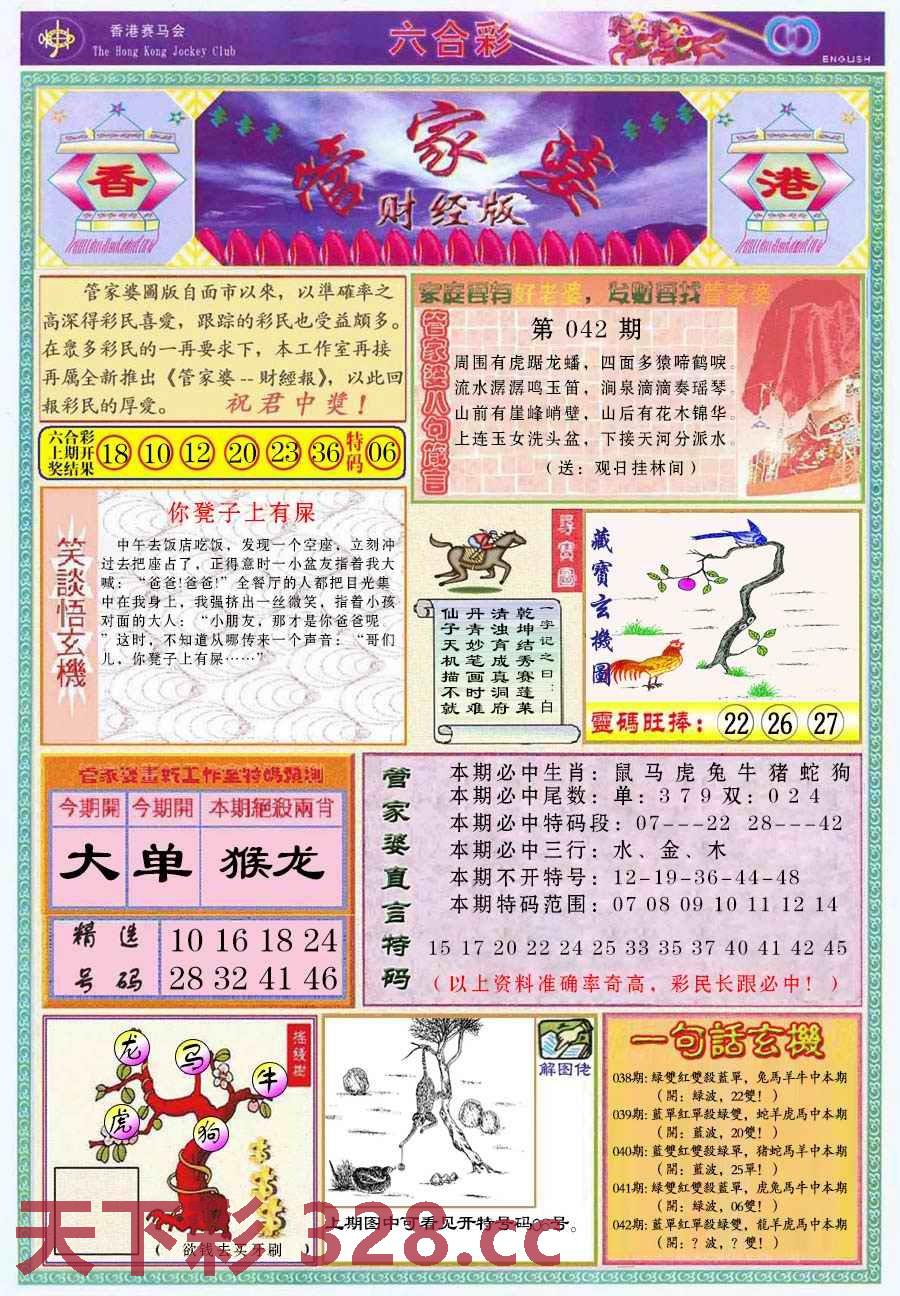 香港赛马会
The Hong Kong Jockey Club
六合彩
ENGLISH
香
管家婆
财经版
港
管家婆圖版自面市以來，以準確率之
高深得彩民喜愛，跟踪的彩民也受益頗多。
在眾多彩民的一再要求下，本工作室再接
再厲全新推出《管家婆--財經報》，以此回
報彩民的厚愛。 祝君中獎！
六合彩
上期开
奖结果
18 10 12 20 23 36 特码 06
好老婆，
管家婆
管家婆八句箴言
第 042 期
周围有虎踞龙蟠，四面多猿啼鹤唳。
流水潺潺鸣玉笛，涧泉滴滴奏瑶琴。
山前有崖峰峭壁，山后有花木锦华。
上连玉女洗头盆，下接天河分派水。
（送：观日挂林间）
笑談悟玄機
你凳子上有屎
中午去饭店吃饭，发现一个空座，立刻冲
过去把座占了，正得意时一小盆友指着我大
喊：“爸爸!爸爸!”全餐厅的人都把目光集
中在我身上，我强挤出一丝微笑，指着小孩
对面的大人：“小朋友，那才是你爸爸呢
”这时，不知道从哪传来一个声音：“哥们
儿，你凳子上有屎……”
尋寶圖
一字记之曰：白
乾坤结秀赛蓬莱
清浊育成真洞府
丹青妙笔画时难
仙子天机描不就
藏寶玄機圖
靈碼旺捧：22 26 27
今期開 今期開 本期絕殺兩肖
大 单 猴龙
精选号码
10 16 18 24
28 32 41 46
管家婆直言特码
本期必中生肖：鼠马虎兔牛猪蛇狗
本期必中尾数：单：3 7 9 双：0 2 4
本期必中特码段：07---22 28---42
本期必中三行：水、金、木
本期不开特号：12-19-36-44-48
本期特码范围：07 08 09 10 11 12 14
15 17 20 22 24 25 33 35 37 40 41 42 45
（以上资料准确率奇高，彩民长跟必中！）
搖錢樹
龙
马
牛
虎
狗
（ 欲钱去买牙刷 ）
解图佬
上期图中可看见开特号码06号。
一句話玄機
038期: 绿雙紅雙殺藍單，兔馬羊牛中本期
（開：緑波，22雙！）
039期: 藍單紅單殺緑雙，蛇羊虎馬中本期
（開：藍波，20雙！）
040期: 藍雙紅雙殺緑單，猪蛇馬羊中本期
（開：藍波，25單！）
041期: 緑雙紅雙殺藍單，虎兔馬牛中本期
（開：緑波，06雙！）
042期: 藍單紅單殺緑雙，龍羊虎馬中本期
（開：？波，？雙！）
天下彩 328.cc